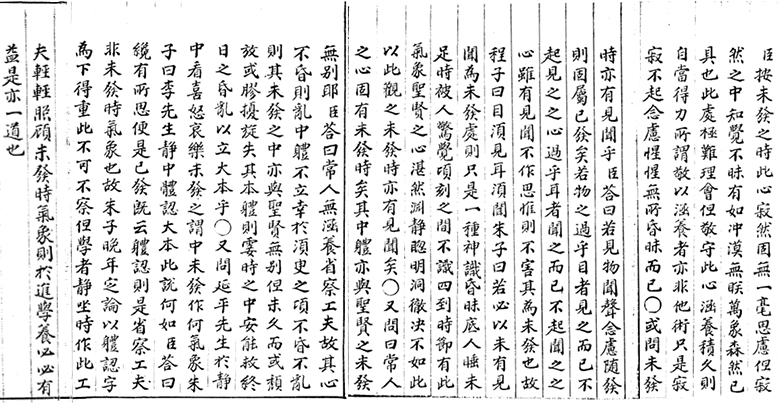 臣按未發之時此心寂然固無一毫思慮但寂
然之中知覺不昧有如冲漠無眹萬象森然已
具也此處極難理會但敬守此心涵養積久則
自當得力所謂敬以涵養者亦非他術只是寂
寂不起念慮惺惺無所昏昧而已○或問未發
時亦有見聞乎臣答曰若見物聞聲念慮隨發
則固屬已發矣若物之過乎目者見之而已不
起見之之心過乎耳者聞之而已不起聞之之
心雖有見聞不作思惟則不害其為未發也故
程子曰目須見耳須聞朱子曰若必以未有見
聞為未發處則只是一種神識昏昧底人睡未
足時被人驚覺頃刻之間不識四到時節有此
氣象聖賢之心湛然淵靜聰明洞徹決不如此
以此觀之未發時亦有見聞矣○又問曰常人
之心固有未發時矣其中體亦與聖賢之未發
無別耶臣答曰常人無涵養省察工夫故其心
不昏則亂中體不立幸於須臾之頃不昏不亂
則其未發之中亦與聖賢無別但未久而或頹
放或膠擾旋失其本體則霎時之中安能救終
日之昏亂以立大本乎○又問延平先生於靜
中看喜怒哀樂未發之謂中未發作何氣象朱
子曰李先生靜中體認大本此說何如臣答曰
纔有所思便是已發既云體認則是省察工夫
非未發時氣象也故朱子晚年定論以體認字
為下得重此不可不察但學者靜坐時作此工
夫輕輕照顧未發時氣象則於進學養心必有
益是亦一道也